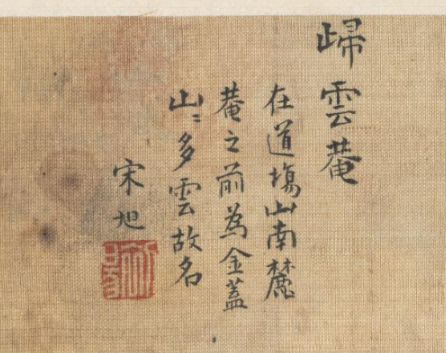 歸雲菴
在道塲山南麓
菴之前為金蓋
山〻多雲故名
宋旭